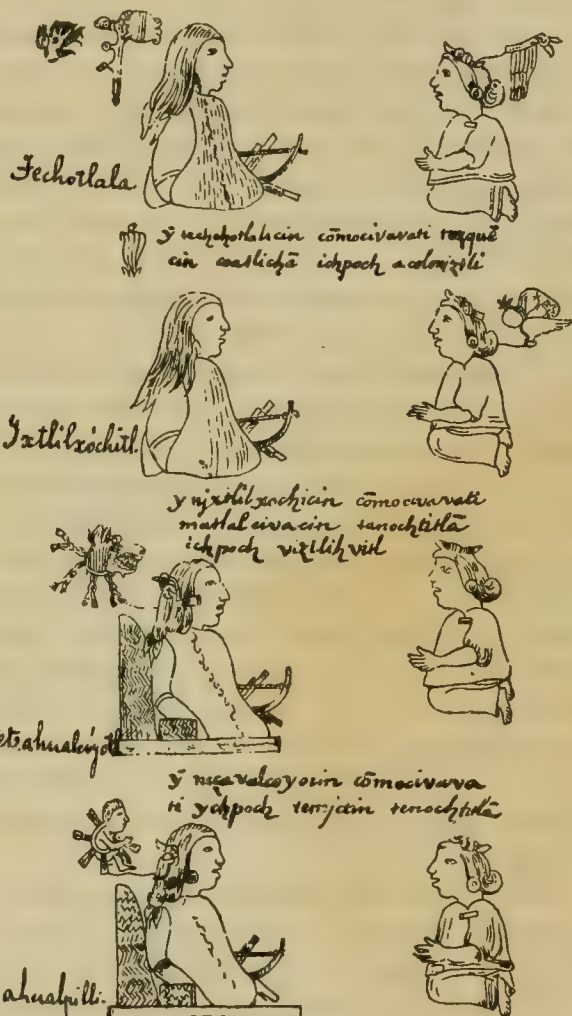 Techotlala
ÿ techchotlalacin cōmocivavati tozquē
cin coatlichā ichpoch acolmiztli
Yxtlilxóchitl.
y njxtlilxochicin cōmocivavati
matlalcivacin tenochtitlā
ichpoch viztlihvitl
etzahualcóyotl
ÿ neçavalcoyocin cōmocivava
ti ychpoch temjctzin tenochtitlā
ahualpilli.